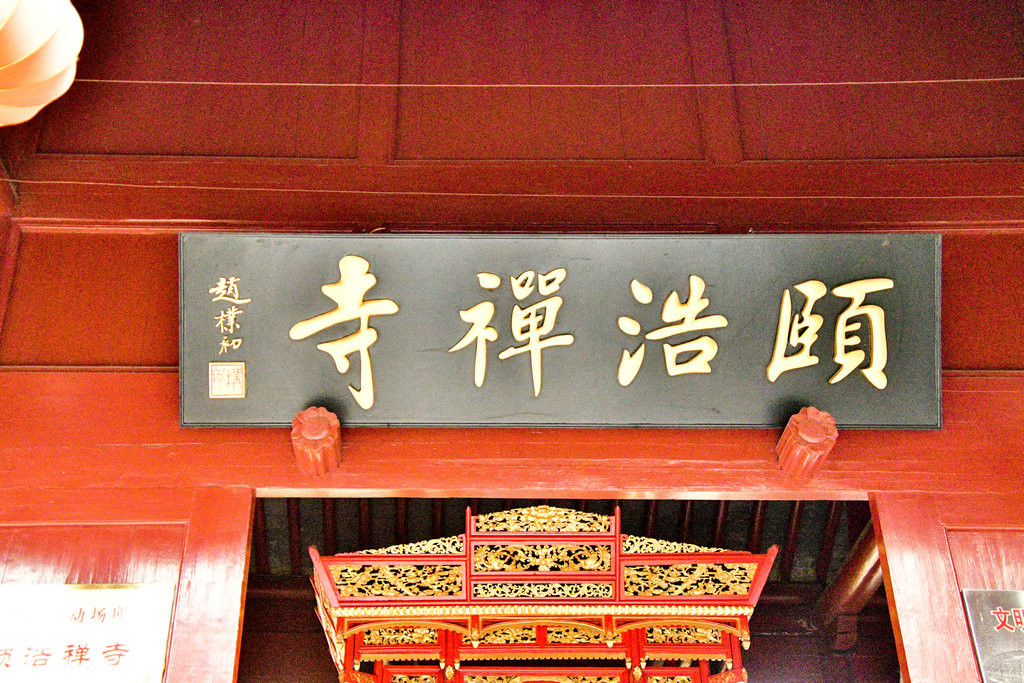 頤浩禪寺
趙樸初
动场所
颐浩禅寺
文明